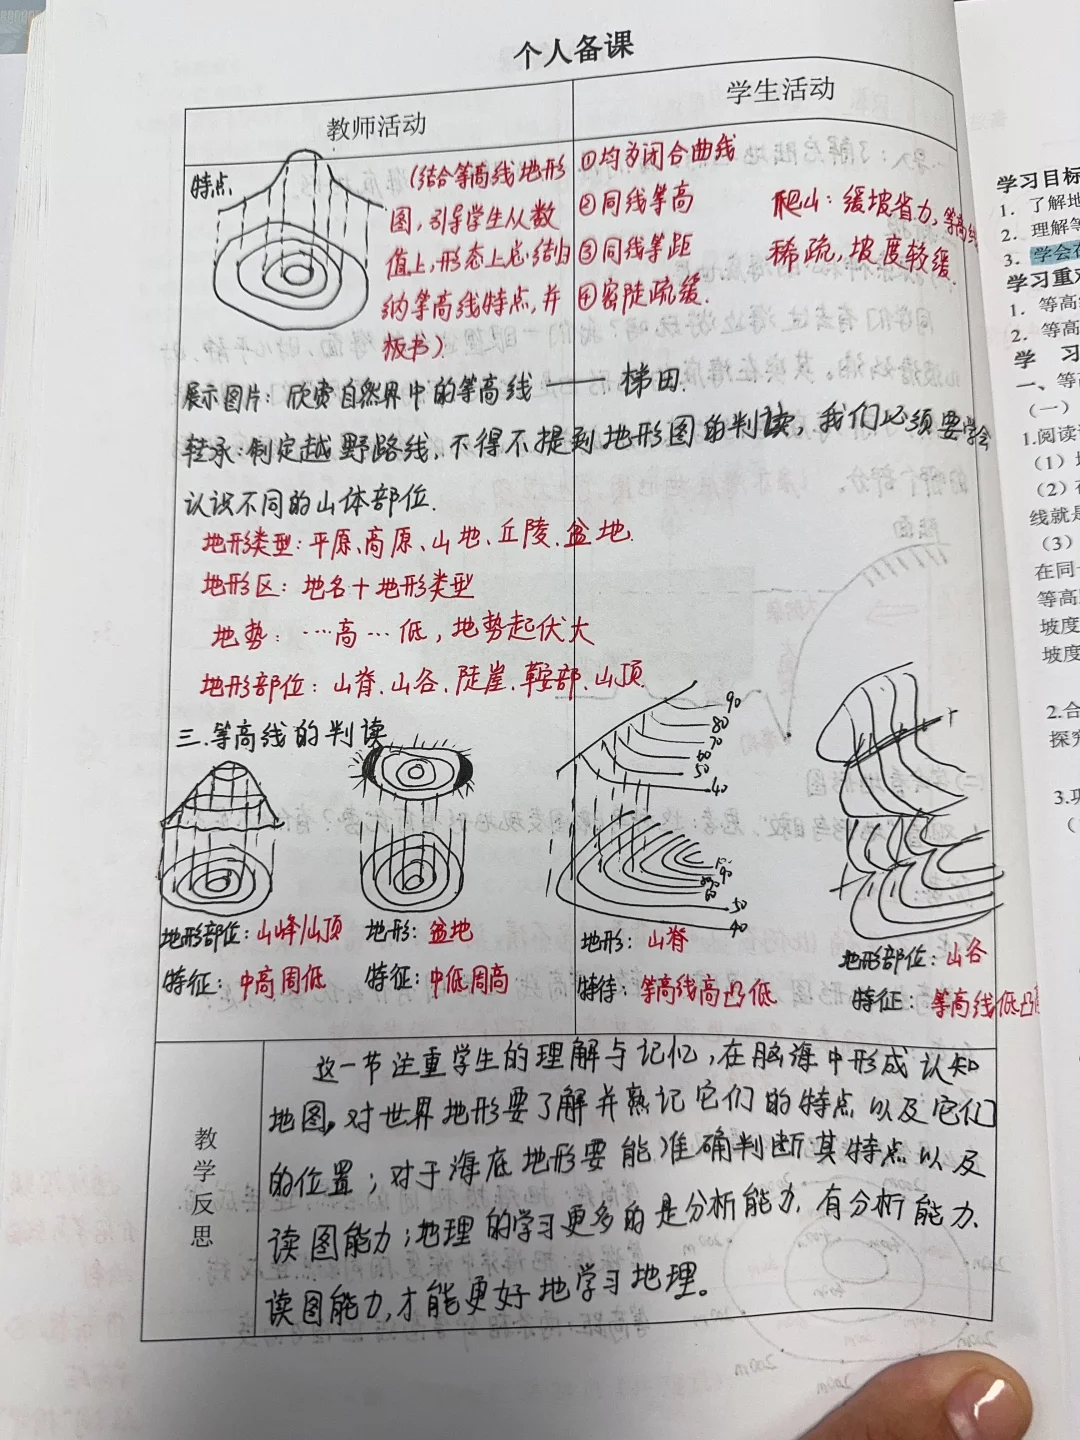 个人备课
教师活动
学生活动
特点
(结合等高线地形
图,引导学生从数
值上,形态上总结归
纳等高线特点,并
板书)
①均为闭合曲线
②同线等高
③同线等距
④密陡疏缓.
爬山:缓坡省力,等高线
稀疏,坡度较缓.
展示图片:欣赏自然界中的等高线——梯田.
转承:制定越野路线,不得不提到地形图的判读,我们必须要学会
认识不同的山体部位.
地形类型:平原、高原、山地、丘陵、盆地.
地形区:地名+地形类型
地势:…高…低,地势起伏大
地形部位:山脊、山谷、陡崖、鞍部、山顶.
三.等高线的判读
90
80
70
60
50
40
50
40
地形部位:山峰/山顶
特征:中高周低
地形:盆地
特征:中低周高
地形:山脊
特待:等高线高凸低
地形部位:山谷
特征:等高线低凸
教学反思
这一节注重学生的理解与记忆,在脑海中形成认知
地图。对世界地形要了解并熟记它们的特点以及它们
的位置;对于海底地形要能准确判断其特点以及
读图能力;地理的学习更多的是分析能力,有分析能力、
读图能力,才能更好地学习地理。
学习目标
1. 了解地
2. 理解等
3. 学会在
学习重难
1. 等高
2. 等高
学 习
一、等高
(一)
1.阅读
(1)
(2)在
线就是
(3)
在同一
等高
坡度
坡度
2.合
探究
3.巩
(